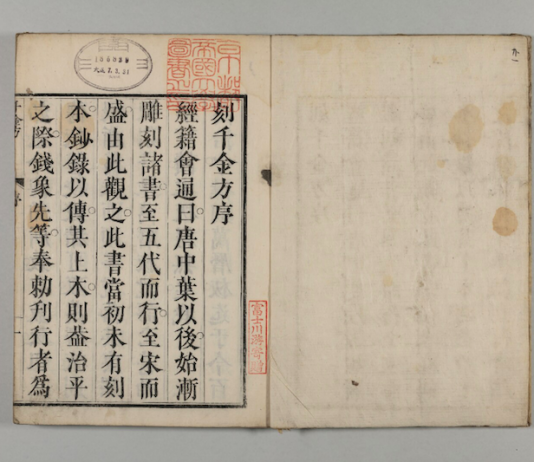 刻千金方序
經籍會通曰。唐中葉以後。始漸
雕刻諸書。至五代而行。至宋而
盛。由此觀之。此書當初未有刻
本。鈔錄以傳。其上木。則葢治平
之際。錢象先等。奉勅刋行者爲
序
一
富士川游寄贈